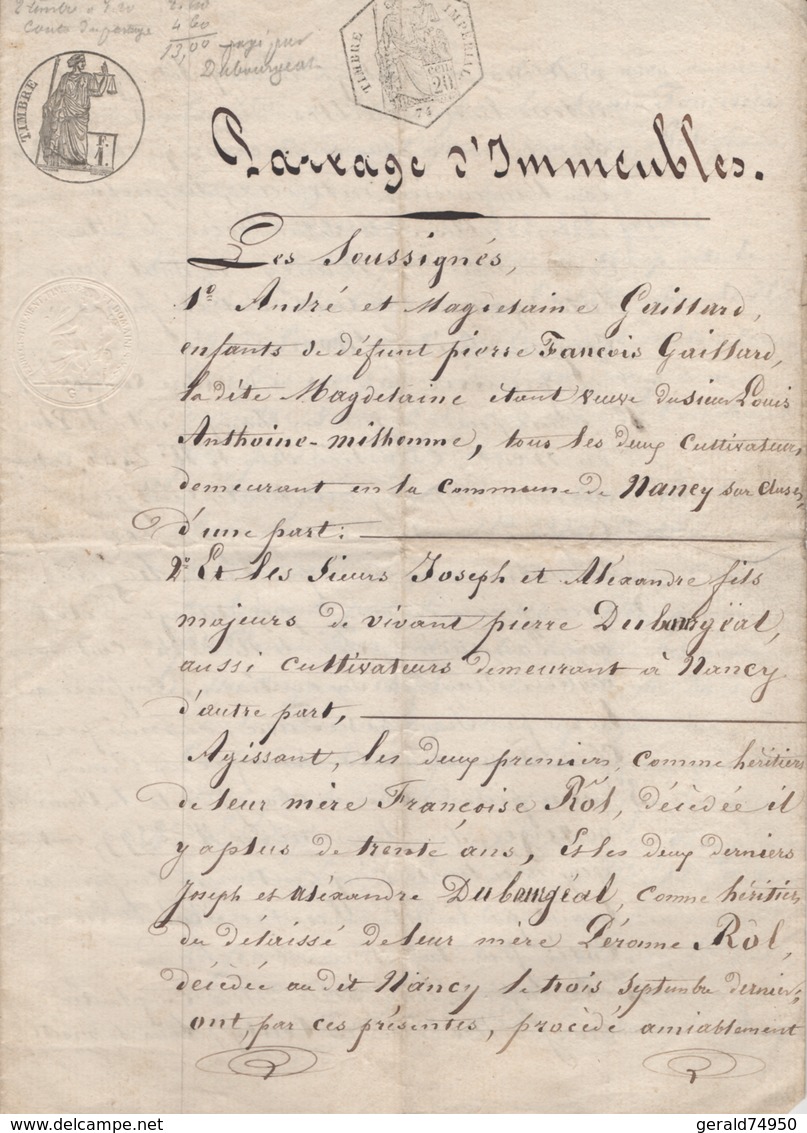 2 timbre a 1.20 2.40
Couts du partage 4 60
13,00 payé par
Dubourgeal
TIMBRE
F.
1.
TIMBRE IMPÉRIAL
20
74
Partage d'Immeubles.
Les Soussignés,
1º André et Magdelaine Gaillard,
enfants de défunt pierre Fancois Gaillard,
la dite Magdelaine étant veuve du sieur Louis
Anthoine-milhomme, tous les deux cultivateurs,
demeurant en la commune de Nancy sur cluses,
d'une part:
2º Et les Sieurs Joseph et Aléxandre fils
majeurs de vivant pierre Dubourgëal,
aussi cultivateurs demeurant à Nancy
d'autre part,
Agissant, les deux premiers, comme héritiers
de leur mère Françoise Rôl, décèdée il
y a plus de trente ans, Et les deux derniers
Joseph et aléxandre Dubourgéal, comme héritiers
du délaissé de leur mère Pérone Rôl,
décèdée au dit Nancy le trois septembre dernier;
ont, par ces présentes, procèdé amiablement
gerald74950